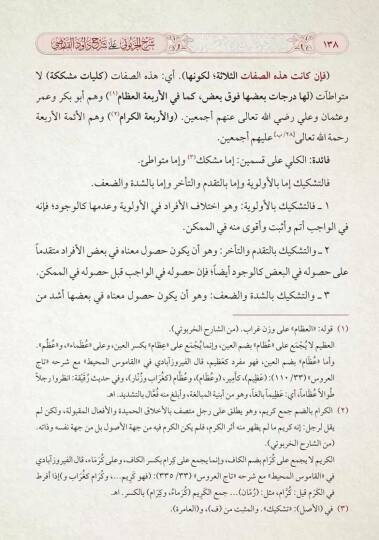 ١٣٨
شرح الخربوتي على شرح داود القارصي
(فإن كانت هذه الصفات الثلاثة؛ لكونها). أي: هذه الصفات (كليات مشككة) لا
متواطآت (لها درجات بعضها فوق بعض، كما في الأربعة العظام(١)) وهم أبو بكر وعمر
وعثمان وعلي رضي الله تعالى عنهم أجمعين. (والأربعة الكرام(٢)) وهم الأئمة الأربعة
رحمة الله تعالى[٢٨/ب] عليهم أجمعين.
فائدة: الكلي على قسمين: إما مشكك(٣) وإما متواطئ.
فالتشكيك إما بالأولوية وإما بالتقدم والتأخر وإما بالشدة والضعف.
١ ـ فالتشكيك بالأولوية: وهو اختلاف الأفراد في الأولوية وعدمها كالوجود؛ فإنه
في الواجب أتم وأثبت وأقوى منه في الممكن.
٢ ـ والتشكيك بالتقدم والتأخر: وهو أن يكون حصول معناه في بعض الأفراد متقدماً
على حصوله في البعض كالوجود أيضاً؛ فإن حصوله في الواجب قبل حصوله في الممكن.
٣ ـ والتشكيك بالشدة والضعف: وهو أن يكون حصول معناه في بعضها أشد من
(١) قوله: «العظام» على وزن غراب. (من الشارح الخربوتي).
العظيم لا يُجْمَع على عُظَام بضم العين، وإنما يُجْمَع على «عِظام» بكسر العين، وعلى «عُظَماء»، و«عُظَّم».
وأما «عُظام» بضم العين، فهو مفرد كعَظيم، قال الفيروزآبادي في «القاموس المحيط» مع شرحه «تاج
العروس» (٣٣/ ١١٠): (عَظِيم)، كأَمِير، (وعُظَام)، وعُظَّام (كغُرَاب وزُنَّار)، وفي حديث رُقَيْقَة: انظروا رجلاً
طُوالاً عُظَاماً، أي: عَظِيماً بالغاً، وهو من أبنية المبالغة، وأبلغ منه فُعَّال بالتشديد. اهـ.
(٢) الكرام بالضم جمع كريم، وهو يطلق على رجل متصف بالأخلاق الحميدة والأفعال المقبولة، ولكن لم
يقل لرجل: إنه كريم ما لم يظهر منه أثر الكرم، فلم يكن الكرم فيه من جهة الأصول بل من جهة نفسه وذاته.
(من الشارح الخربوتي).
الكريم لا يجمع على كُرَام بضم الكاف، وإنما يجمع على كِرام بكسر الكاف، وعلى كُرَمَاء، قال الفيروزآبادي
في «القاموس المحيط» مع شرحه «تاج العروس» (٣٣/ ٣٣٥): (فهو كَرِيم...، وكُرَام كغُرَاب و)إذا أفرط
في الكَرَم قيل: كُرَّام، مثل: (رُمَّان)... جمع الكَرِيم (كُرَمَاءُ، وكِرَام) بالكسر. اهـ
(٣) في (الأصل): «تشكيك». والمثبت من (ف)، و(العامرة).